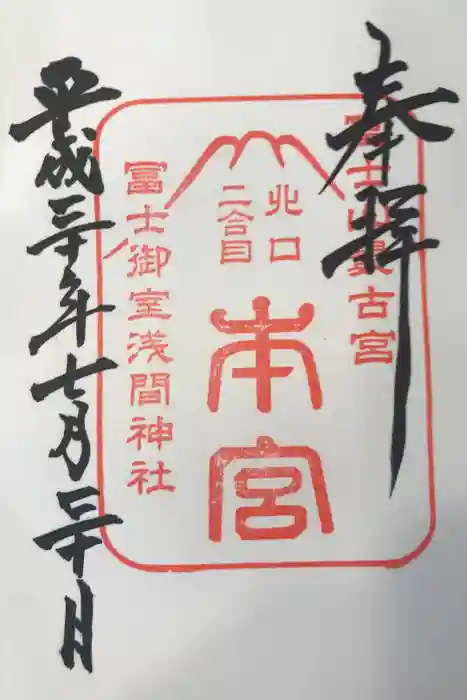 奉拝
富士山最古宮
北口
二合目
本宮
冨士御室浅間神社
平成三十年七月三十日